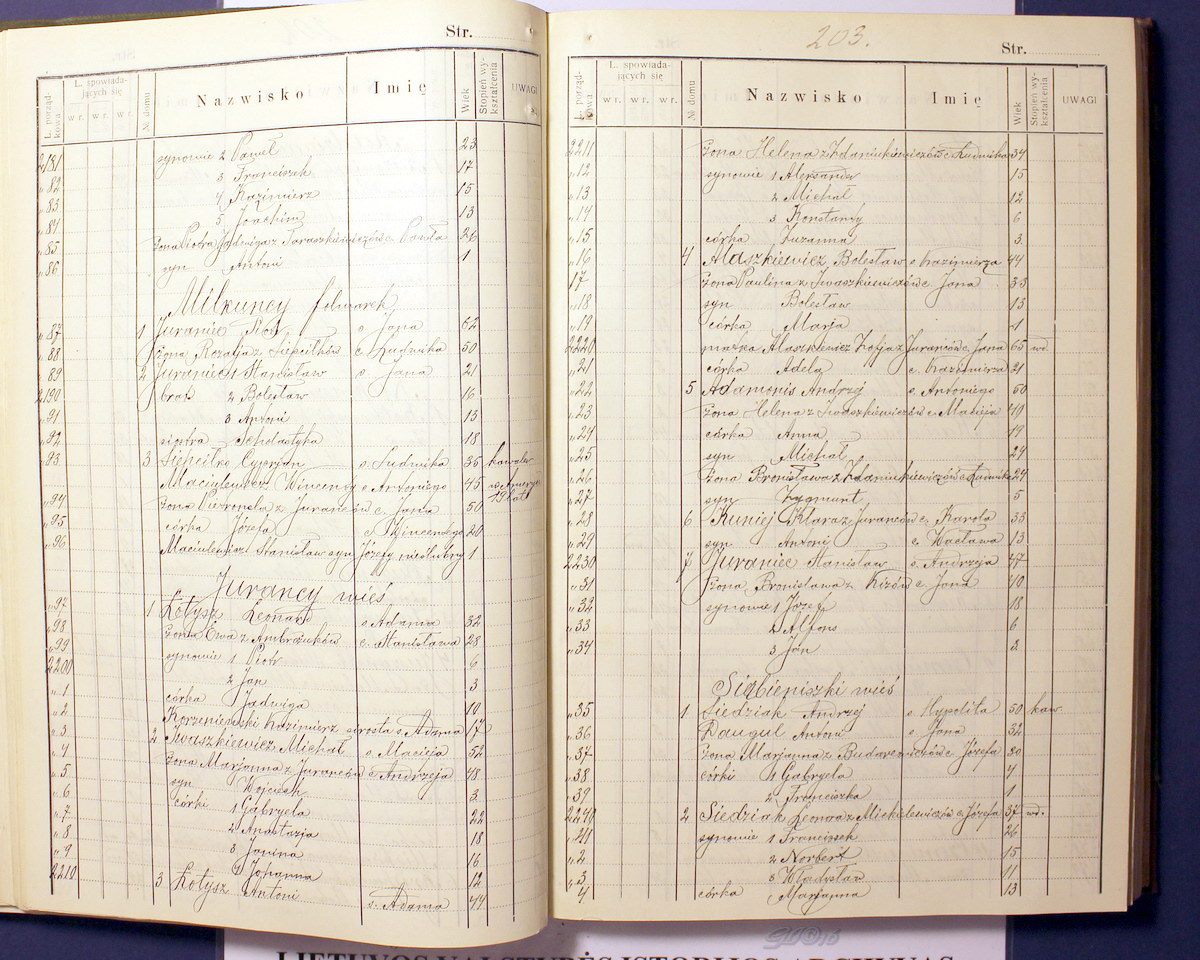 Str.
L. porządkowa L. spowiadających się w r. w r. w r. № domu Nazwisko Imię Wiek Stopień wykształcenia UWAGI
2181 synowie 2 Paweł 23
„82 3 Franciszek 17
„83 4 Kazimierz 15
„84 5 Joachim 13
„85 żona Piotra Jadwiga z Taraszkiewiczów c. Pawła 26
„86 syn Antoni 1
Milkuncy folwarek
„87 1 Juraniec Piotr s. Jana 62
„88 żona Rozalja z Siepciłków c. Ludwika 50
89 2 Juraniec Stanisław s. Jana 21
2190 brat 2 Bolesław 16
„91 3 Antoni 13
„92 siostra Scholastyka 18
„93 3 Siepciłko Cyprjan s. Ludwika 35 kawaler
Maciulewicz Wincenty s. Antoniego 45 w Ameryce 19 lat
„94 żona Weronika z Jurańców c. Jana 50
„95 córka Józefa c. Wincentego 20
„96 Maciulewicz Stanisław syn Józefy nieślubny 1
Jurancy wieś
„97 1 Łotysz Leonard s. Adama 32
„98 żona Ewa z Ambrożuków c. Stanisława 28
„99 synowie 1 Piotr 6
2200 2 Jan 3
„1 córka Jadwiga 10
„2 Korzeniewski Kazimierz sierota s. Adama 17
„3 2 Iwaszkiewicz Michał s. Macieja 52
„4 żona Marjanna z Jurańców c. Andrzeja 48
„5 syn Wojciech 3
„6 córki 1 Gabryela 22
„7 2 Anastazja 18
„8 3 Janina 16
„9 4 Johanna 12
2210 3 Łotysz Antoni s. Adama 44
203.
Str.
L. porządkowa L. spowiadających się w r. w r. w r. № domu Nazwisko Imię Wiek Stopień wykształcenia UWAGI
2211 żona Helena z Zdaniukiewiczów c. Ludwika 34
„12 synowie 1 Aleksander 15
„13 2 Michał 12
„14 3 Konstanty 6
„15 córka Zuzanna 3
„16 4 Alaszkiewicz Bolesław s. Kazimierza 44
17 żona Paulina z Iwaszkiewiczów c. Jana 33
„18 syn Bolesław 13
„19 córka Marja 1
2220 matka Alaszkiewicz Zofja z Jurańców c. Jana 65 wd.
„21 córka Adela c. Kazimierza 21
„22 5 Adamonis Andrzej s. Antoniego 60
„23 żona Helena z Iwaszkiewiczów c. Macieja 49
„24 córka Anna 19
„25 syn Michał 24
„26 żona Bronisława z Zdaniukiewiczów c. Ludwika 24
„27 syn Zygmunt 5
„28 6 Kuniej Klara z Jurańców c. Karola 33
„29 syn Antoni s. Wacława 13
2230 7 Juraniec Stanisław s. Andrzeja 47
„31 żona Bronisława z Kizów c. Jana 40
„32 synowie 1 Józef 18
„33 2 Alfons 6
„34 3 Jan 2
Siabieniszki wieś
„35 1 Siedziak Andrzej s. Hypolita 50 kaw.
„36 Daugul Antoni s. Jana 32
„37 żona Marjanna z Budarewiczów c. Józefa 30
„38 córki 1 Gabryela 4
„39 2 Franciszka 1
2240 2 Siedziak Leonora z Mickielewiczów c. Józefa 37 wd.
„41 synowie 1 Franciszek 26
„2 2 Norbert 15
„3 3 Władysław 11
„4 córka Marjanna 13
LIETUVOS VALSTYBĖS ISTORIJOS ARCHYVAS